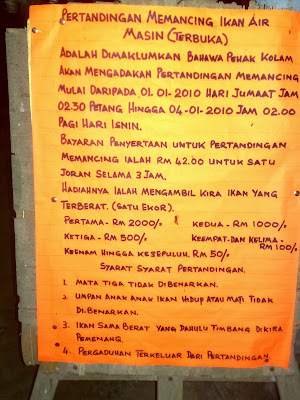 PERTANDINGAN MEMANCING IKAN AIR
MASIN (TERBUKA)
ADALAH DIMAKLUMKAN BAHAWA PEHAK KOLAM
AKAN MENGADAKAN PERTANDINGAN MEMANCING
MULAI DARIPADA 01-01-2010 HARI JUMAAT JAM
02.30 PETANG HINGGA 04-01-2010 JAM 02.00
PAGI HARI ISNIN.
BAYARAN PENYERTAAN UNTUK PERTANDINGAN
MEMANCING IALAH RM 42.00 UNTUK SATU
JORAN SELAMA 3 JAM.
HADIAHNYA IALAH MENGAMBIL KIRA IKAN YANG
TERBERAT. (SATU EKOR).
PERTAMA - RM 2000/- KEDUA - RM 1000/-
KETIGA - RM 500/- KEEMPAT DAN KELIMA - RM 100/-
KEENAM HINGGA KESEPULUH. RM 50/-
SYARAT SYARAT PERTANDINGAN.
1. MATA TIGA TIDAK DIBENARKAN.
2. UMPAN ANAK ANAK IKAN HIDUP ATAU MATI TIDAK
DI.BENARKAN.
3. IKAN SAMA BERAT YANG DAHULU TIMBANG DIKIRA
PEMENANG.
4. PERGADUHAN TERKELUAR DARI PERTANDINGAN.